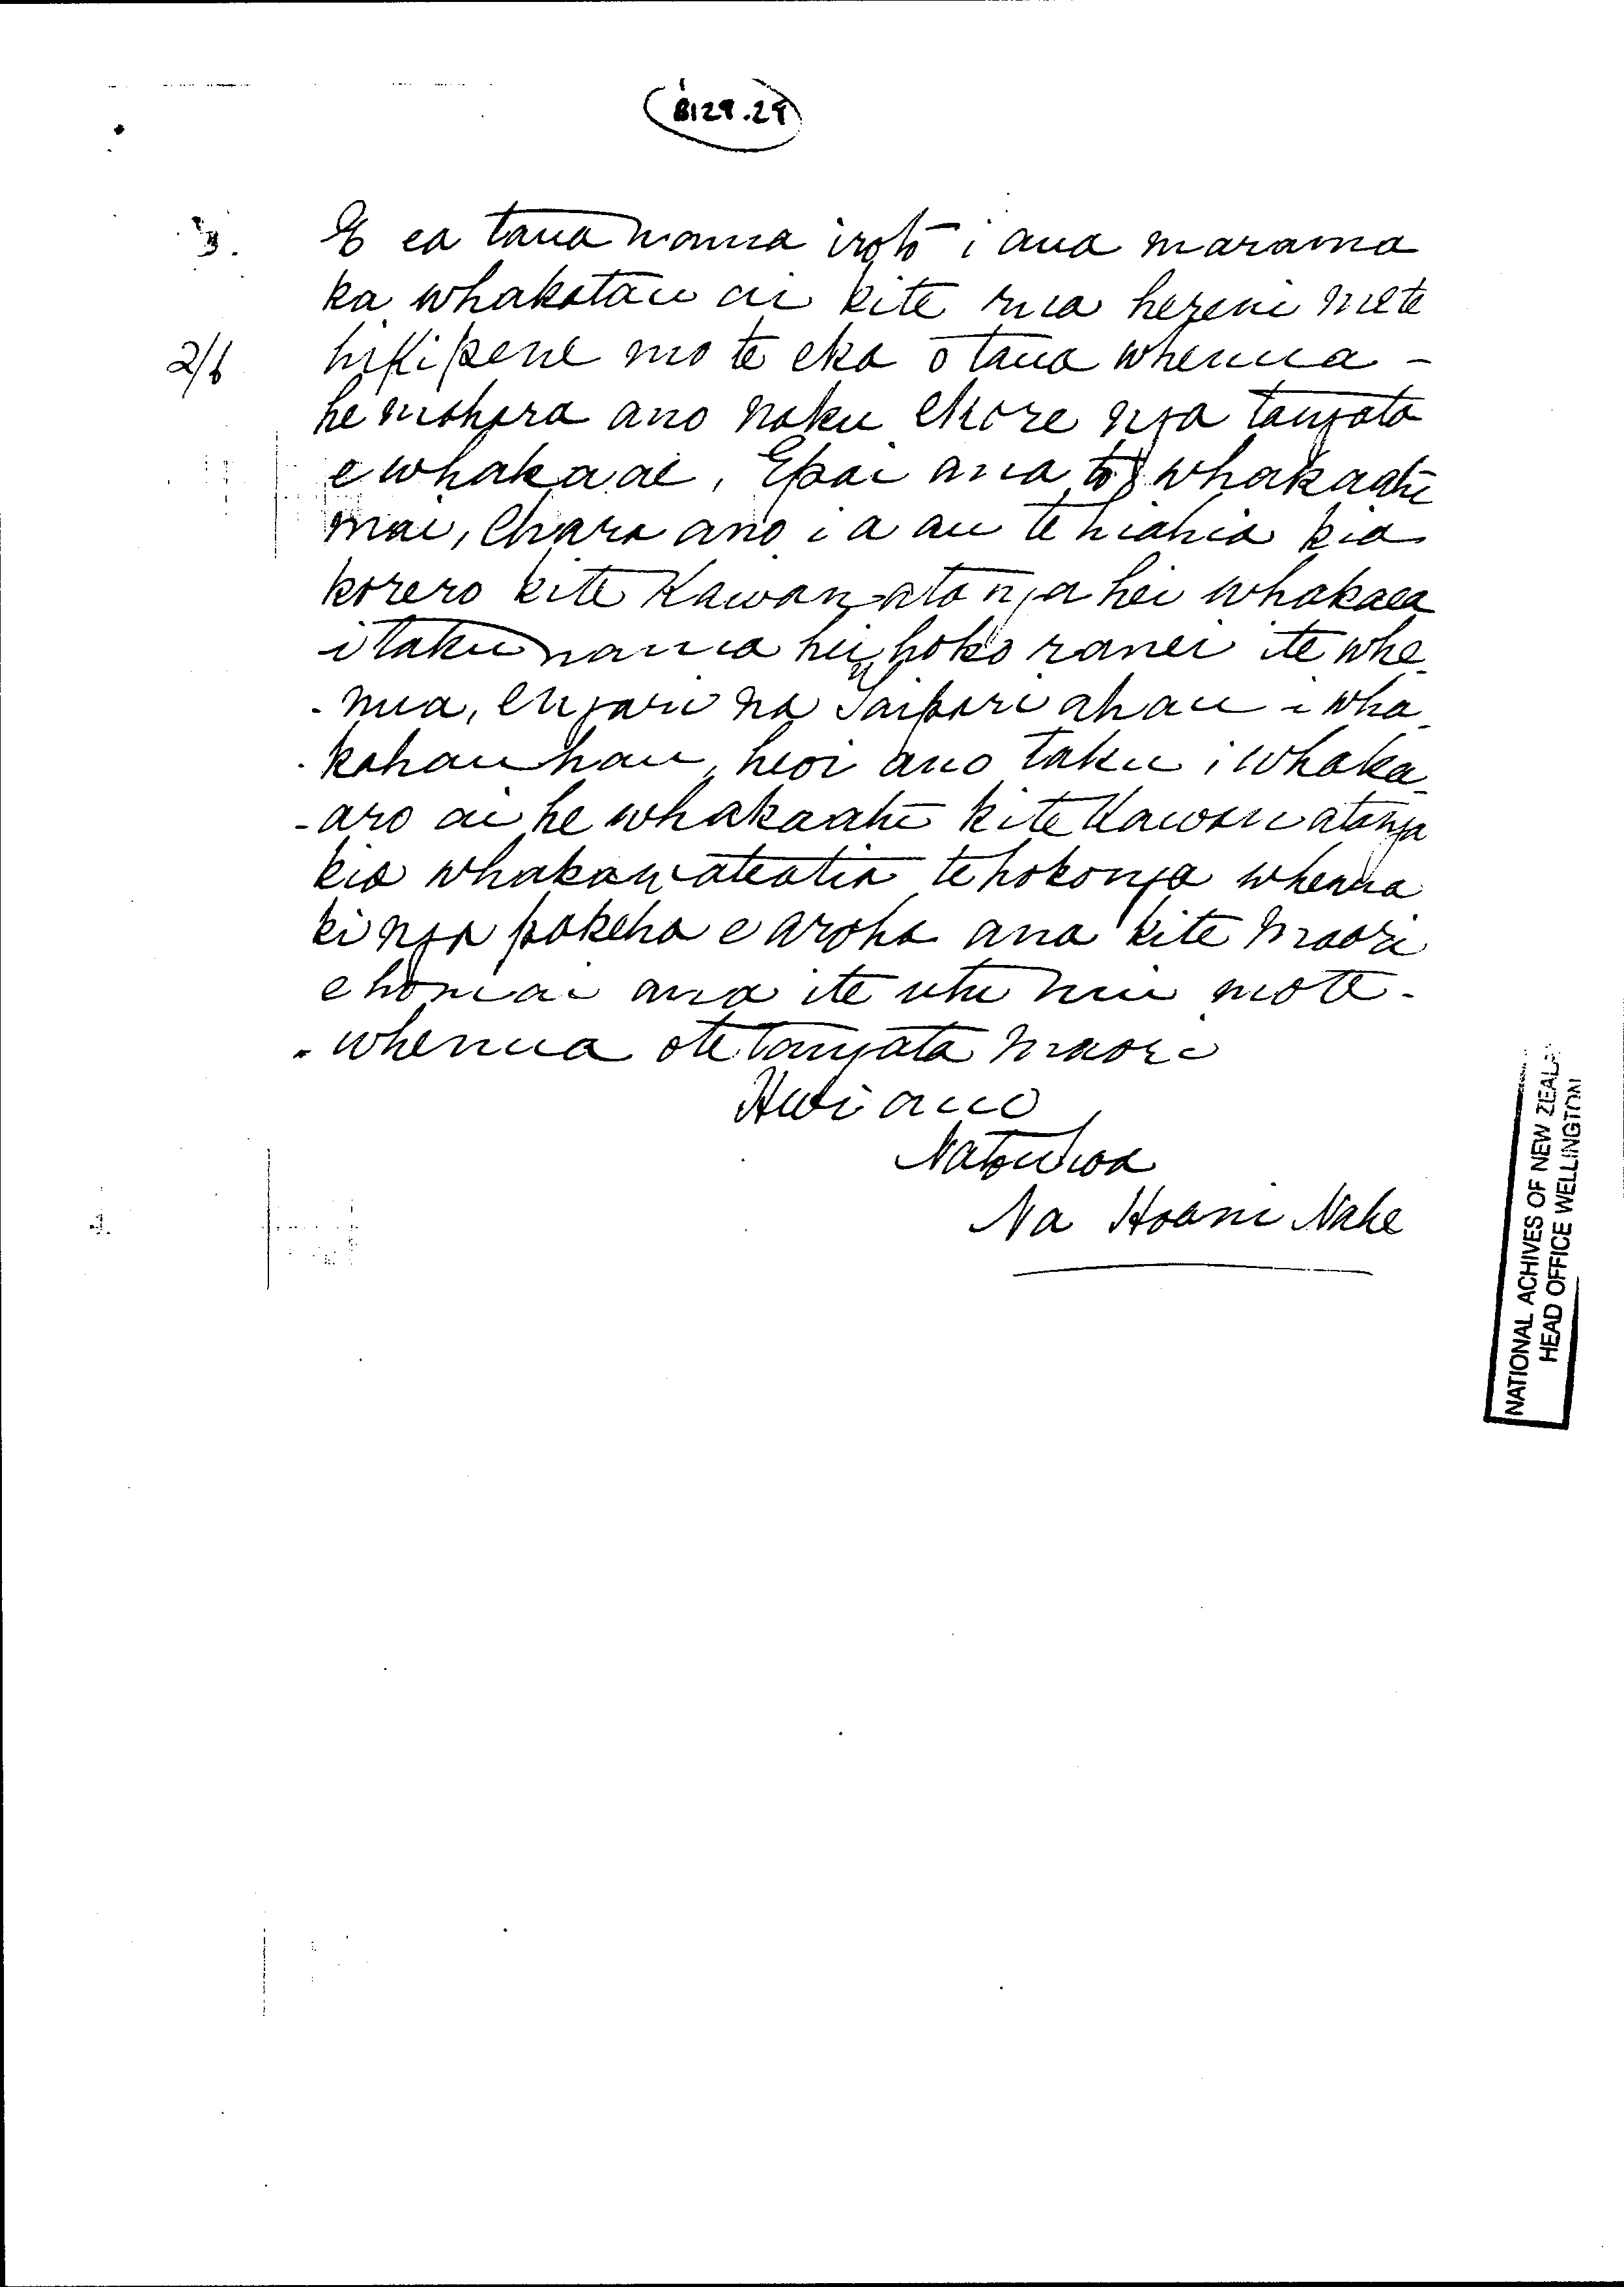 B129.29
3.
E ea taua nama iroto i aua marama
ka whakatau ai kite rua hereni me te
2/6
hikipene mo te eka o taua whenua -
he mohara ano naku ekore nga tangata
e whakaae, Epai ana to whakaatu
mai, Ehara ano i a au te hiahia kia
korero kite Kawanatanga hei whakaea
i taku nama hei hoko ranei ite whe
- nua, engari na Taipari ahau i wha
- kahauhau, heoi ano taku i whaka
- aro ai he whakaatu kite Kawanatanga
kia whakawateatia te hokonga whenua
ki nga pakeha e aroha ana kite maori
e homai ana ite utu nui mote -
whenua ote tangata maori
Heoi ano
Natouhoa
Na Hoani Nahe
NATIONAL ACHIVES OF NEW ZEALA
HEAD OFFICE WELLINGTON